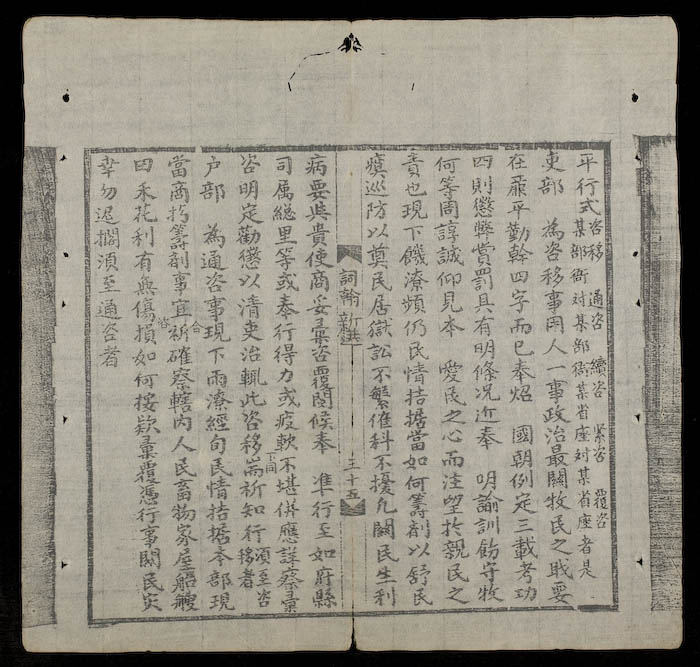 平行式 咨移 通咨 續咨 緊咨 覆咨
某部衙対某部衙某省座対某省座者是
吏部 為咨移事用人一事政治最關牧民之戝要
在廉平勤幹四字而已奉炤 國朝例定三載考功
四則懲弊賞罰具有明條况近奉 明諭訓飭守牧
何等周諄誠仰見本 愛民之心而注望扵親民之
責也現下饑潦頻仍民情拮据當如何籌劑以舒民
瘼巡防以奠民居獄訟不繁催科不擾凢關民生利
詞翰新選
三十五
病要與貴使商妥彙咨覆閣候奉 準行至如府縣
司属總里等或奉行得力或疲軟不堪併應詳察彙
咨明定勸懲以清吏治輒此咨移而祈知行須至咨移者
下同
户部 為通咨事現下雨潦經旬民情拮据本部現
當商扵籌劑事宜祈確察轄内人民畜物家屋船艘
合咨
田禾花利有無傷損如何按欵彙覆憑行事關民災
幸勿遲擱須至通咨者